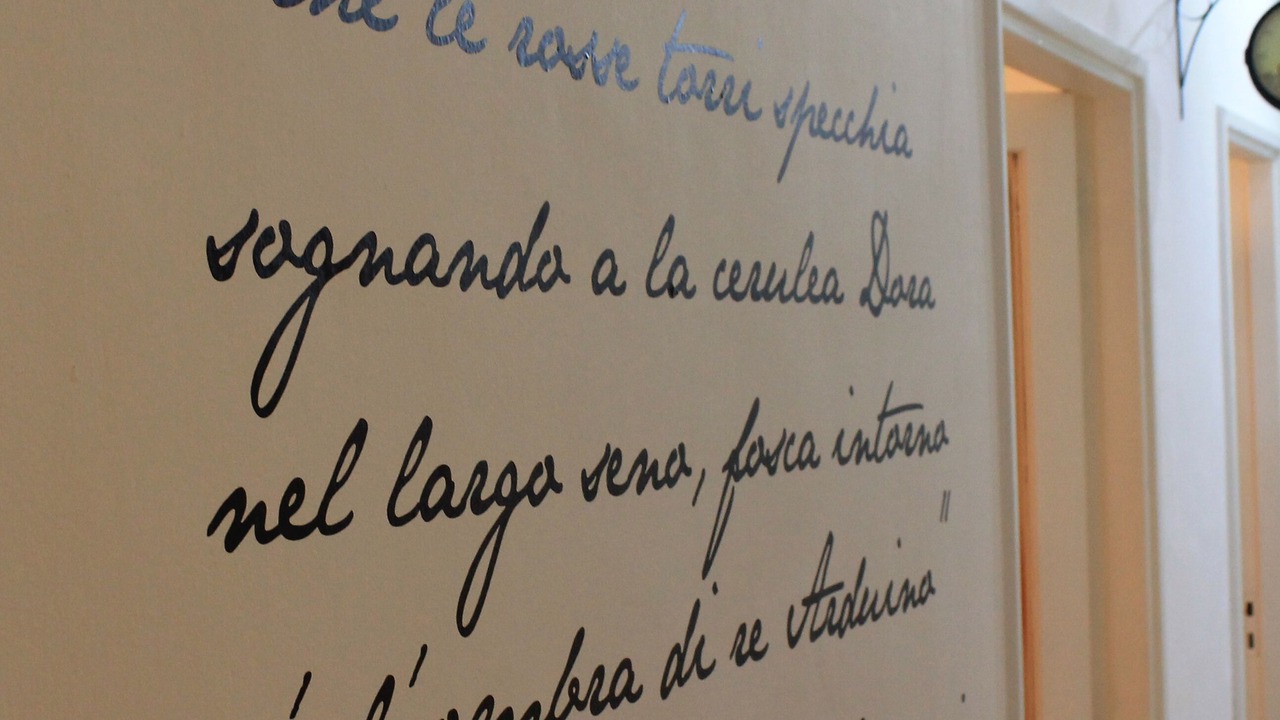 che le rosse torri specchia
sognando a la cerulea Dora
nel largo seno, fosca intorno
è l'ombra di re Arduino"